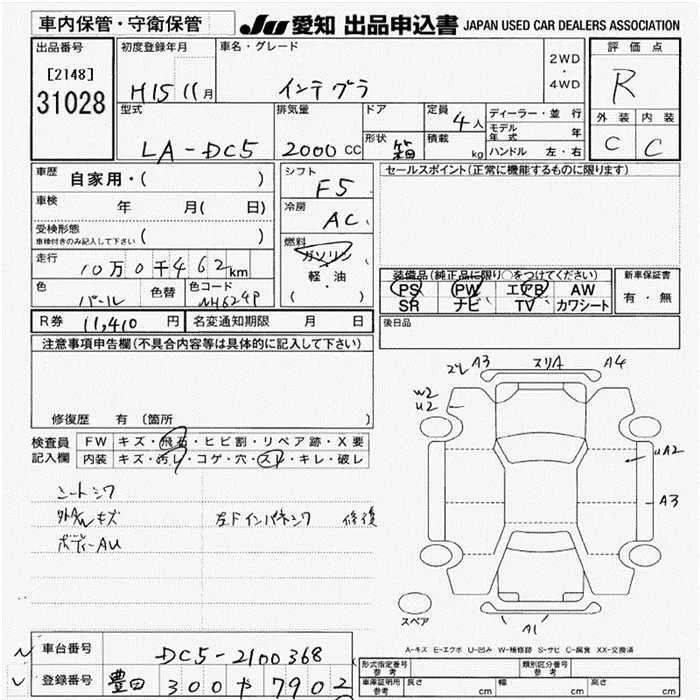 車内保管・守衛保管
JU 愛知 出品申込書 JAPAN USED CAR DEALERS ASSOCIATION
出品番号
[2148]
31028
初度登録年月
H15 11月
車名・グレード
インテグラ
2WD
・
4WD
評価点
R
外装 内装
C C
型式
LA-DC5
排気量
2000 CC
ドア
形状 箱
定員 4人
積載 kg
ディーラー・並行
モデル年式 年
ハンドル 左・右
車歴 自家用・( )
車検 年 月( 日)
受検形態
車検付きのみ記入して下さい ( )
走行 10万0千462km
色 パール 色替 色コード NH624P
シフト F5
冷房 AC
燃料 ガソリン
軽・油
( )
セールスポイント(正常に機能するものに限ります)
装備品(純正品に限り○をつけてください)
PS PW エアB AW
SR ナビ TV カワシート
新車保証書
有・無
R券 11,410 円 名変通知期限 月 日
後日品
注意事項申告欄(不具合内容等は具体的に記入して下さい)
修復歴 有 〔箇所 〕
検査員記入欄
FW キズ・飛石・ヒビ割・リペア跡・X要
内装 キズ・汚レ・コゲ・穴・スレ・キレ・破レ
シートシワ
外A/Wキズ 左Fインパネシワ 修復
ボディーAU
ズレ A3 スリA A4
W2
U2
UA2
A3
A1
スペア
A-キズ E-エクボ U-凹み W-補修跡 S-サビ C-腐食 XX-交換済
車台番号 DC5-2100368
登録番号 豊田 300 や 7902
形式指定番号 参考 類別区分番号 参考
車庫証明用 参考 長さ cm 幅 cm 高さ cm